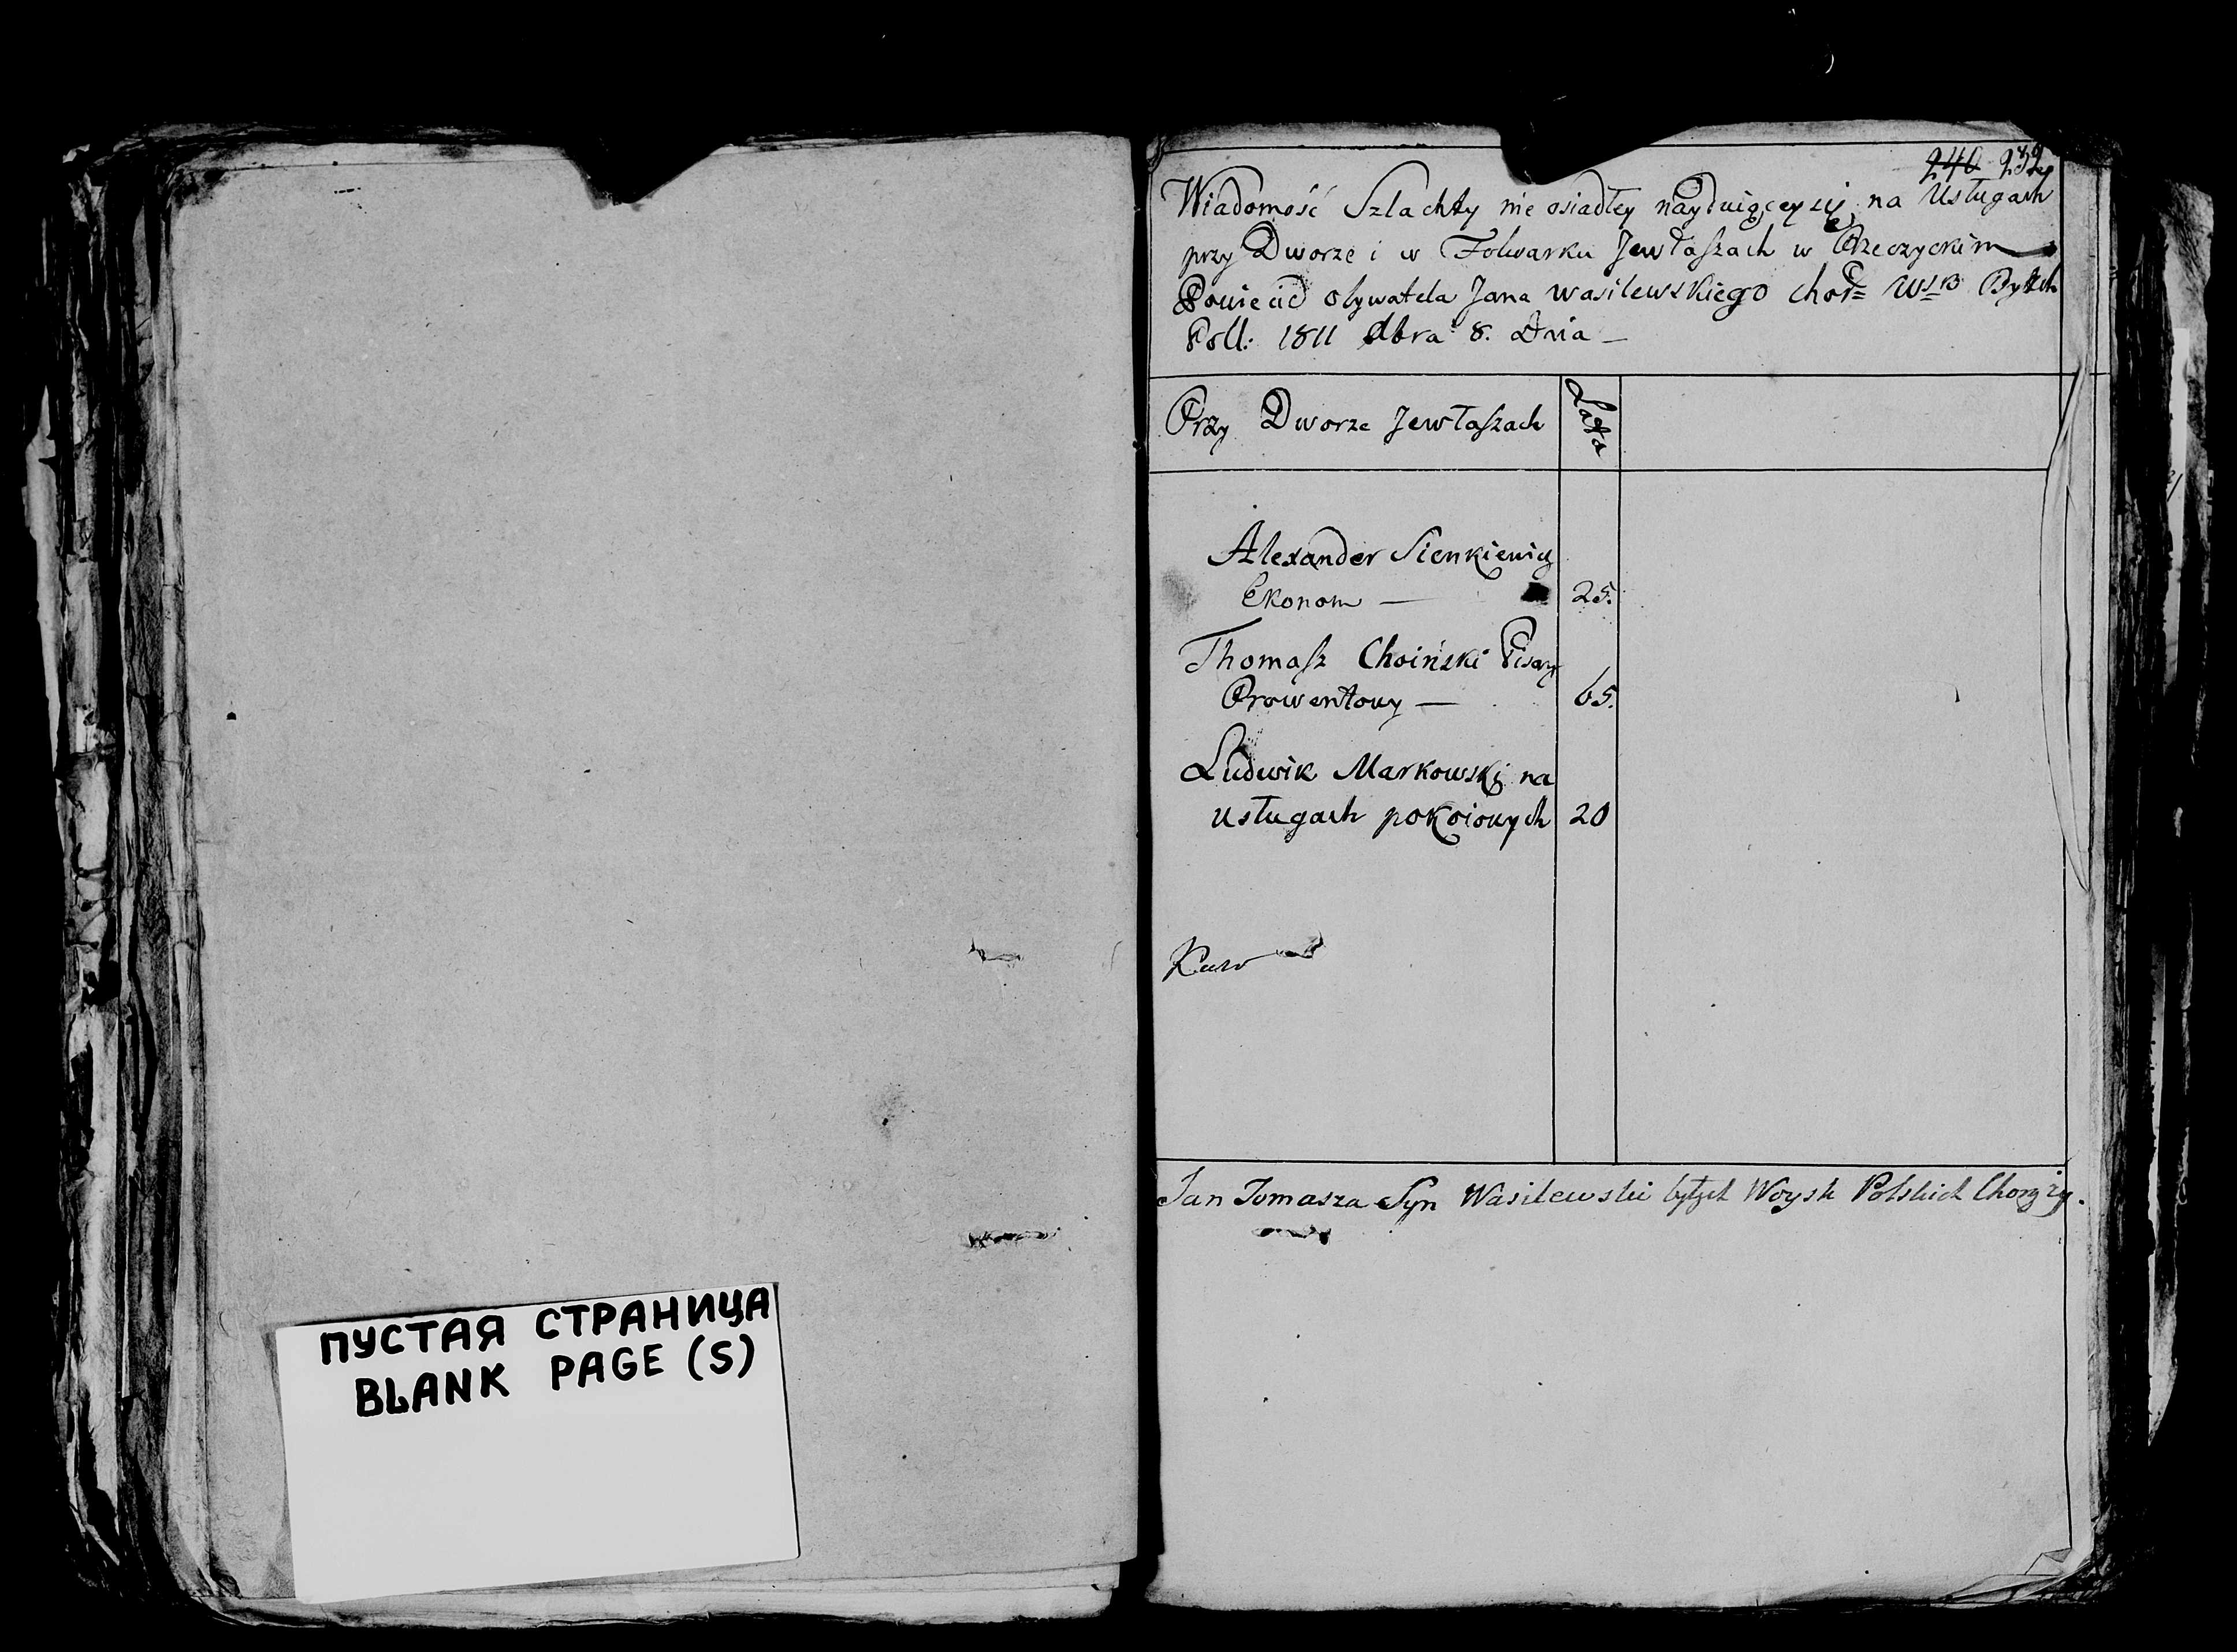 ПУСТАЯ СТРАНИЦА
BLANK PAGE (S)
240
Wiadomość Szlachty nie osiadłey nayduiącey się na Usługach
przy Dworze i w Folwarku Jewłaszach w Rzeczyckim
Powiecie obywatela Jana Wasilewskiego Byłch
Poll: 1811 8. Dnia
Przy Dworze Jewłaszach
Lata
Alexander Sienkiewicz
Ekonom — 25.
Thomasz Choiński Pisarz
Prowentowy — 65.
Ludwik Markowski na
usługach pokoiowych 20
Jan Tomasza Syn Wasilewski byłych Woysk Polskich Chorąży.